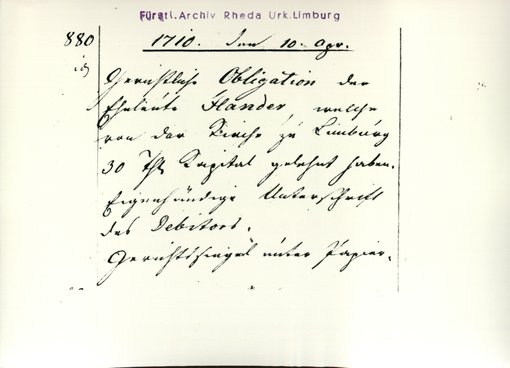 Fürstl. Archiv Rheda Urk. Limburg
880 1710. den 10. Apr.
Gerichtliche Obligation der
Eheleute Flander welche
von der Kirche zu Limburg
30 Thl Kapital gelehnt haben.
Eigenhändige Unterschrift
des Debitors.
Gerichtssiegel unter Papier.